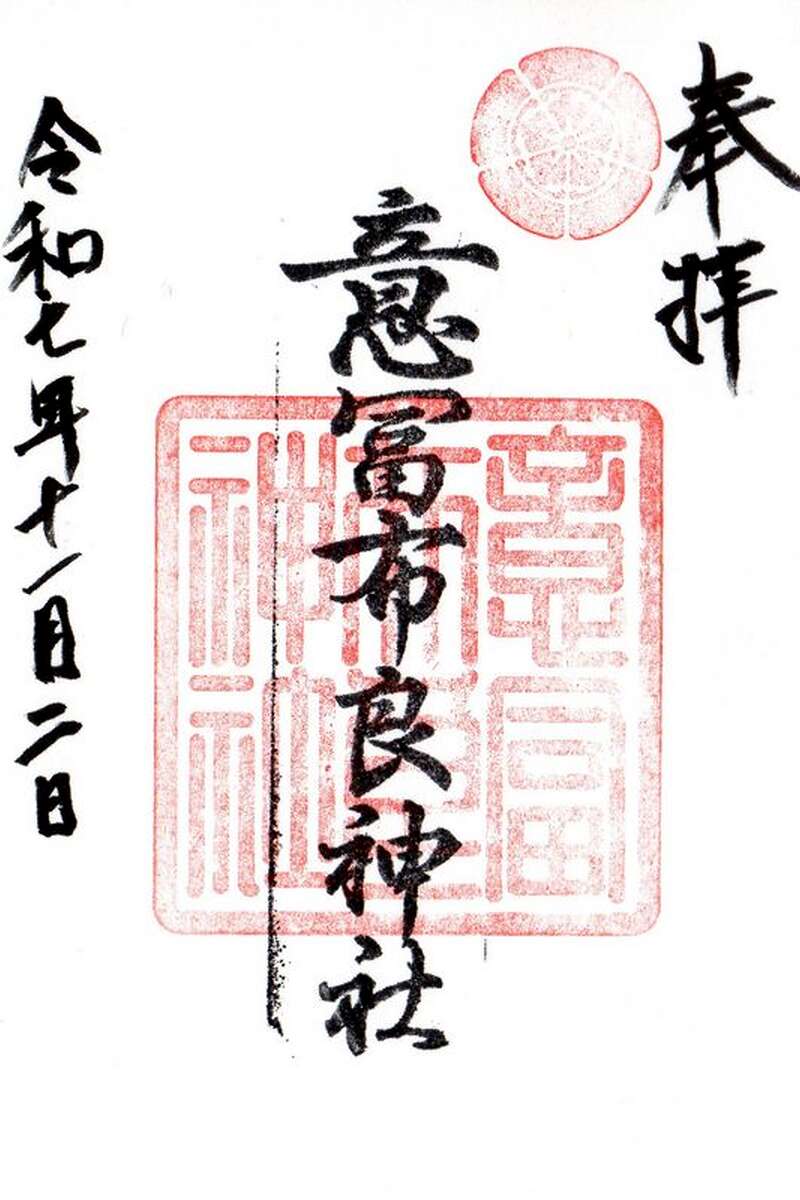 奉拝
意冨布良神社
意富布良神社
令和七年十一月二日